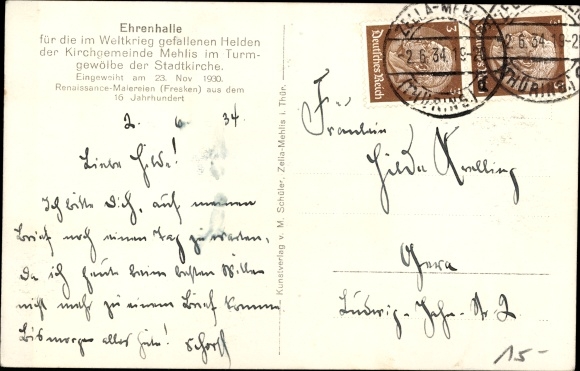 Ehrenhalle
für die im Weltkrieg gefallenen Helden
der Kirchgemeinde Mehlis im Turm-
gewölbe der Stadtkirche.
Eingeweiht am 23. Nov 1930.
Renaissance-Malereien (Fresken) aus dem
16 Jahrhundert
2. 6. 34.
Liebe Hilde!
Ich bitte Dich, auf meinen
Brief noch einen Tag zu warten,
da ich heute beim besten Willen
nicht mehr zu einem Brief komme
Bis morgen alles Gute! Schorsch
Kunstverlag v. M. Schüler, Zella-Mehlis i. Thür.
3 Deutsches Reich
3
ZELLA-MEHLIS
2.6.34.18-
(THÜRINGEN)
d
2.6.34.
(THÜRINGEN)
Fräulein
Hilda
Gera
Ludwig-Jahn-Str. 2
15-